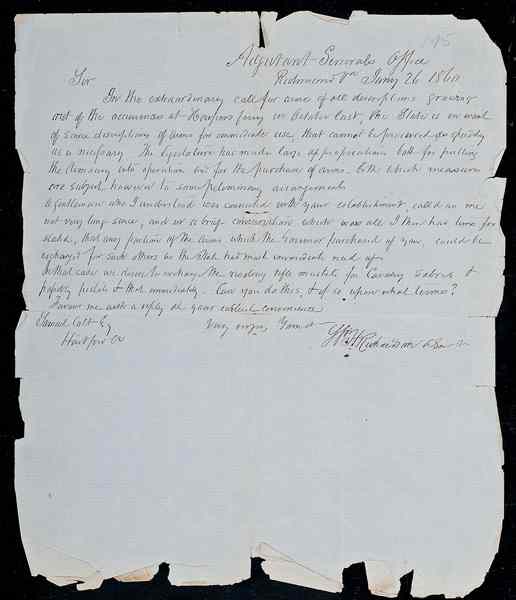 195
Adjutant Generals Office
Richmond Va Jany 26 1860
Sir
In the extraordinary call for arms of all descriptions growing
out of the occurrences at Harpers ferry in October last, the State is in want
of some descriptions of arms for immediate use, that cannot be procured so speedily
as is necessary. The Legislature has made large appropriations both for putting
the Armory into operation and for the purchase of arms. Both which measures
are subject however to some preliminary arrangements
A gentleman who I understood was connected with your establishment, called on me
not very long since, and in a brief conversation which was all I then had time for
stated, that any portion of the arms which the Governor purchased of you, could be
exchanged for such others as the State had most immediate need of.
In that case we desire to exchange the revolving rifle muskets for Cavalry Sabres &
pistols & that immediately. Can you do this, & if so, upon what terms?
favour me with a reply at your earliest convenience
Samuel Colt Esq
Very respy Yours
Wm H Richardson
Hartford